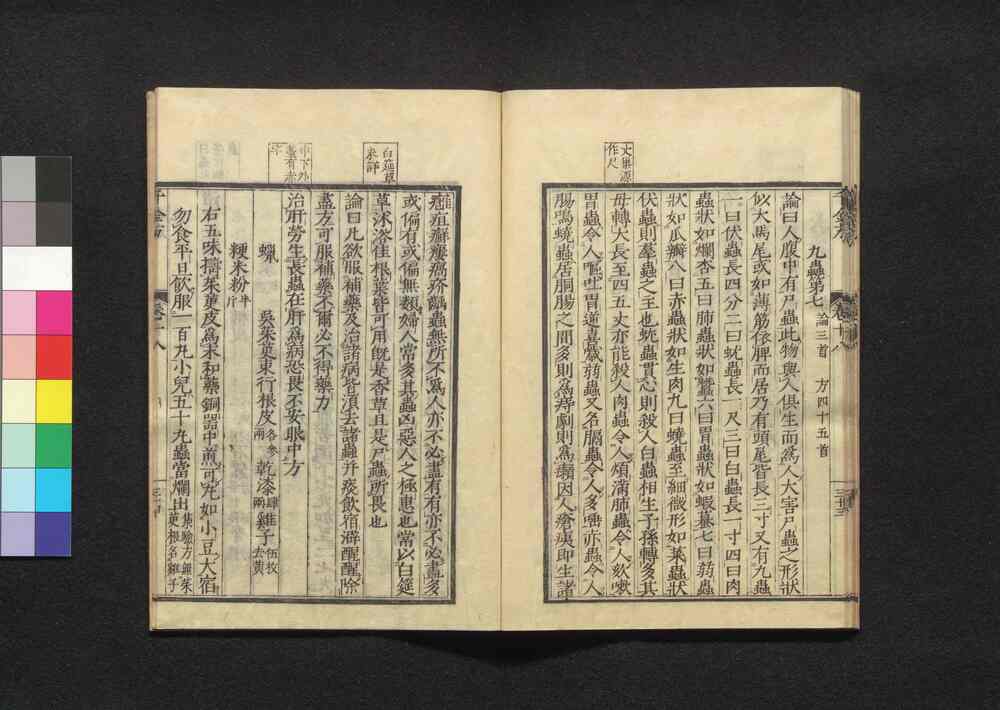 丈巢源
作尺
九蟲第七 論三首 方四十五首
論曰人腹中有尸蟲此物與人俱生而爲人大害尸蟲之形狀
似大馬尾或如薄筋依脾而居乃有頭尾皆長三寸又有九蟲
一曰伏蟲長四分二曰蚘蟲長一尺三曰白蟲長一寸四曰肉
蟲狀如爛杏五曰肺蟲狀如蠶六曰胃蟲狀如蝦蟇七曰蒻蟲
狀如瓜瓣八曰赤蟲狀如生肉九曰蟯蟲至細微形如菜蟲狀
伏蟲則羣蟲之主也蚘蟲貫心則殺人白蟲相生子孫轉多其
母轉大長至四五丈亦能殺人肉蟲令人煩滿肺蟲令人欬嗽
胃蟲令人嘔吐胃逆喜噦蒻蟲又名膈蟲令人多唾赤蟲令人
腸鳴蟯蟲居胴腸之間多則爲痔劇則爲癩因人瘡痍即生諸
白莚草
未詳
癰疽癬瘻瘑疥齲蟲無所不爲人亦不必盡有有亦不必盡多
或偏有或偏無類婦人常多其蟲凶惡人之極患也常以白莚
草沐浴佳根葉皆可用既是香草且是尸蟲所畏也
論曰凡欲服補藥及治諸病皆須去諸蟲并痰飲宿澼醒醒除
盡方可服補藥不爾必不得藥力
治肝勞生長蟲在肝爲病恐畏不安眼中赤方
雞子 五枚去黃 乾漆 四兩 吳茱萸東行根皮 蠟 各二兩
粳米粉 半斤
右五味擣茱萸皮爲末和藥銅器中煎可丸如小豆大宿
勿食平旦飲服一百丸小兒五十丸蟲當爛出
千金方
卷十八